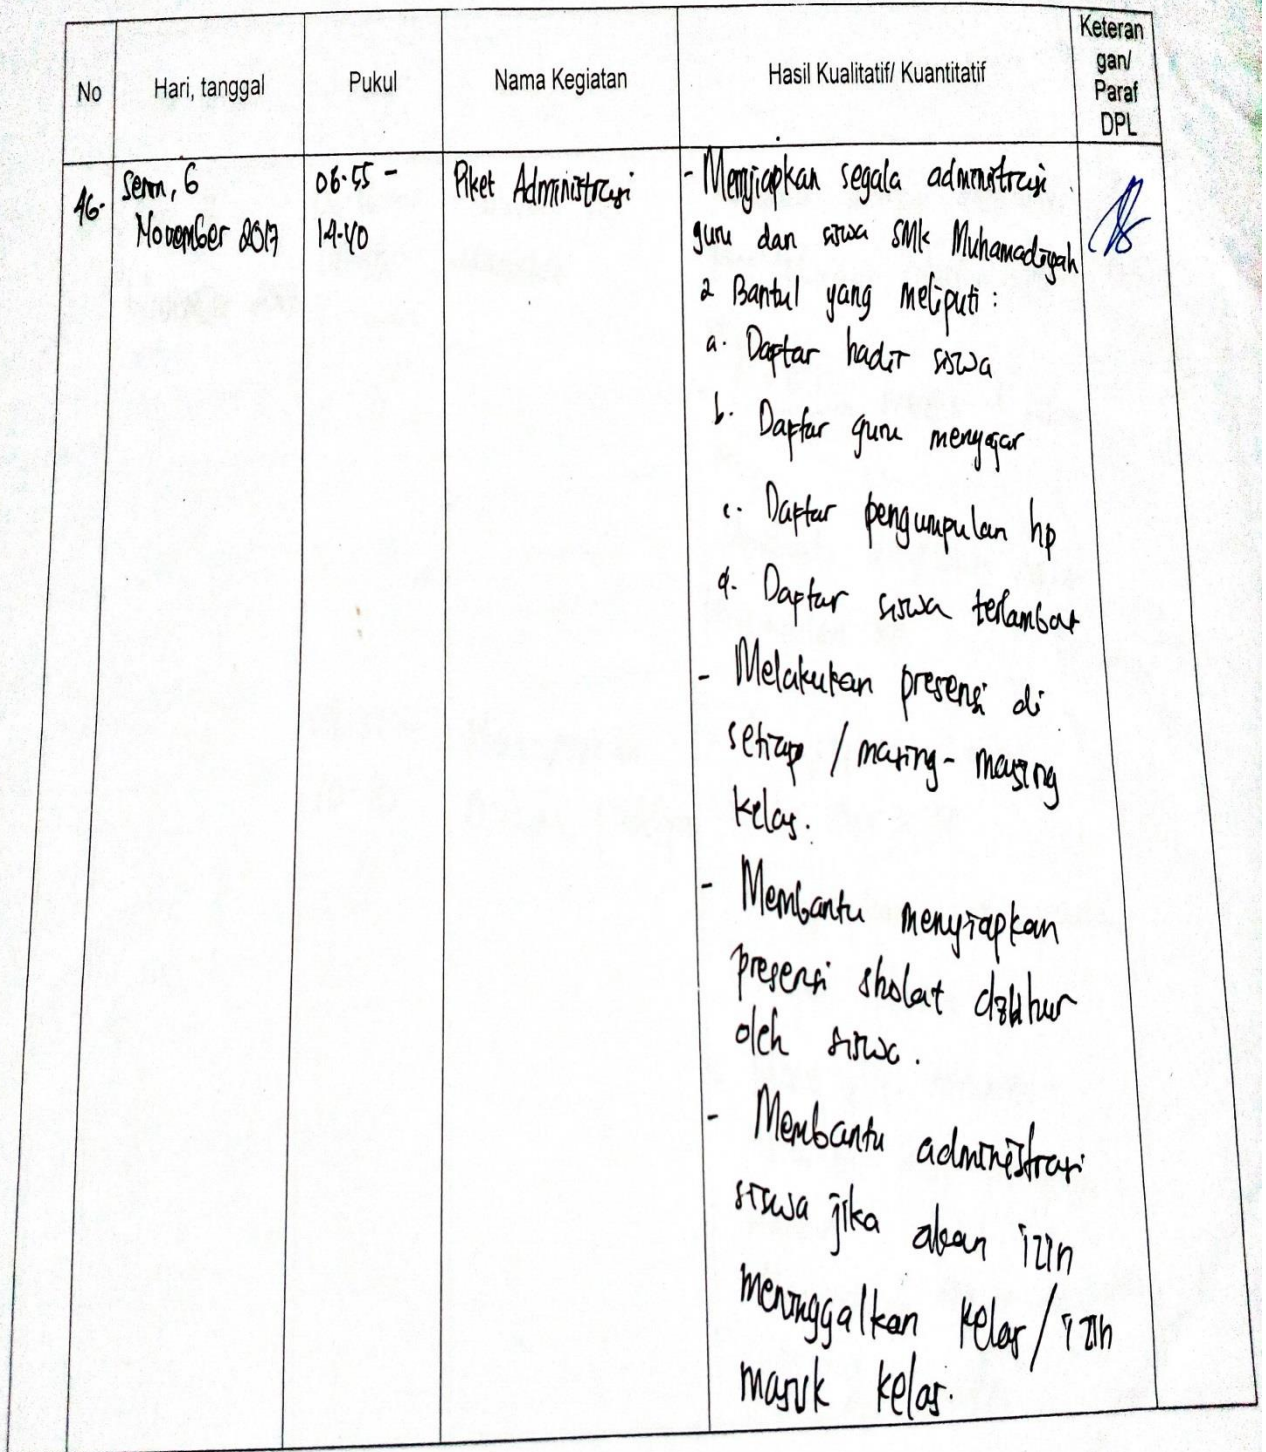 No
Hari, tanggal
Pukul
Nama Kegiatan
Hasil Kualitatif/ Kuantitatif
Keteran
gan/
Paraf
DPL
46.
Senin, 6
November 2017
06.55 -
14.40
Piket Administrasi
- Menyiapkan segala administrasi
guru dan siswa SMK Muhamadiyah
2 Bantul yang meliputi :
a. Daftar hadir siswa
b. Daftar guru mengajar
c. Daftar pengumpulan hp
d. Daftar siswa terlambat
- Melakukan presensi di
setiap / masing-masing
kelas.
- Membantu menyiapkan
presensi sholat dzuhur
oleh siswa.
- Membantu administrasi
siswa jika akan izin
meninggalkan kelas/izin
masuk kelas.